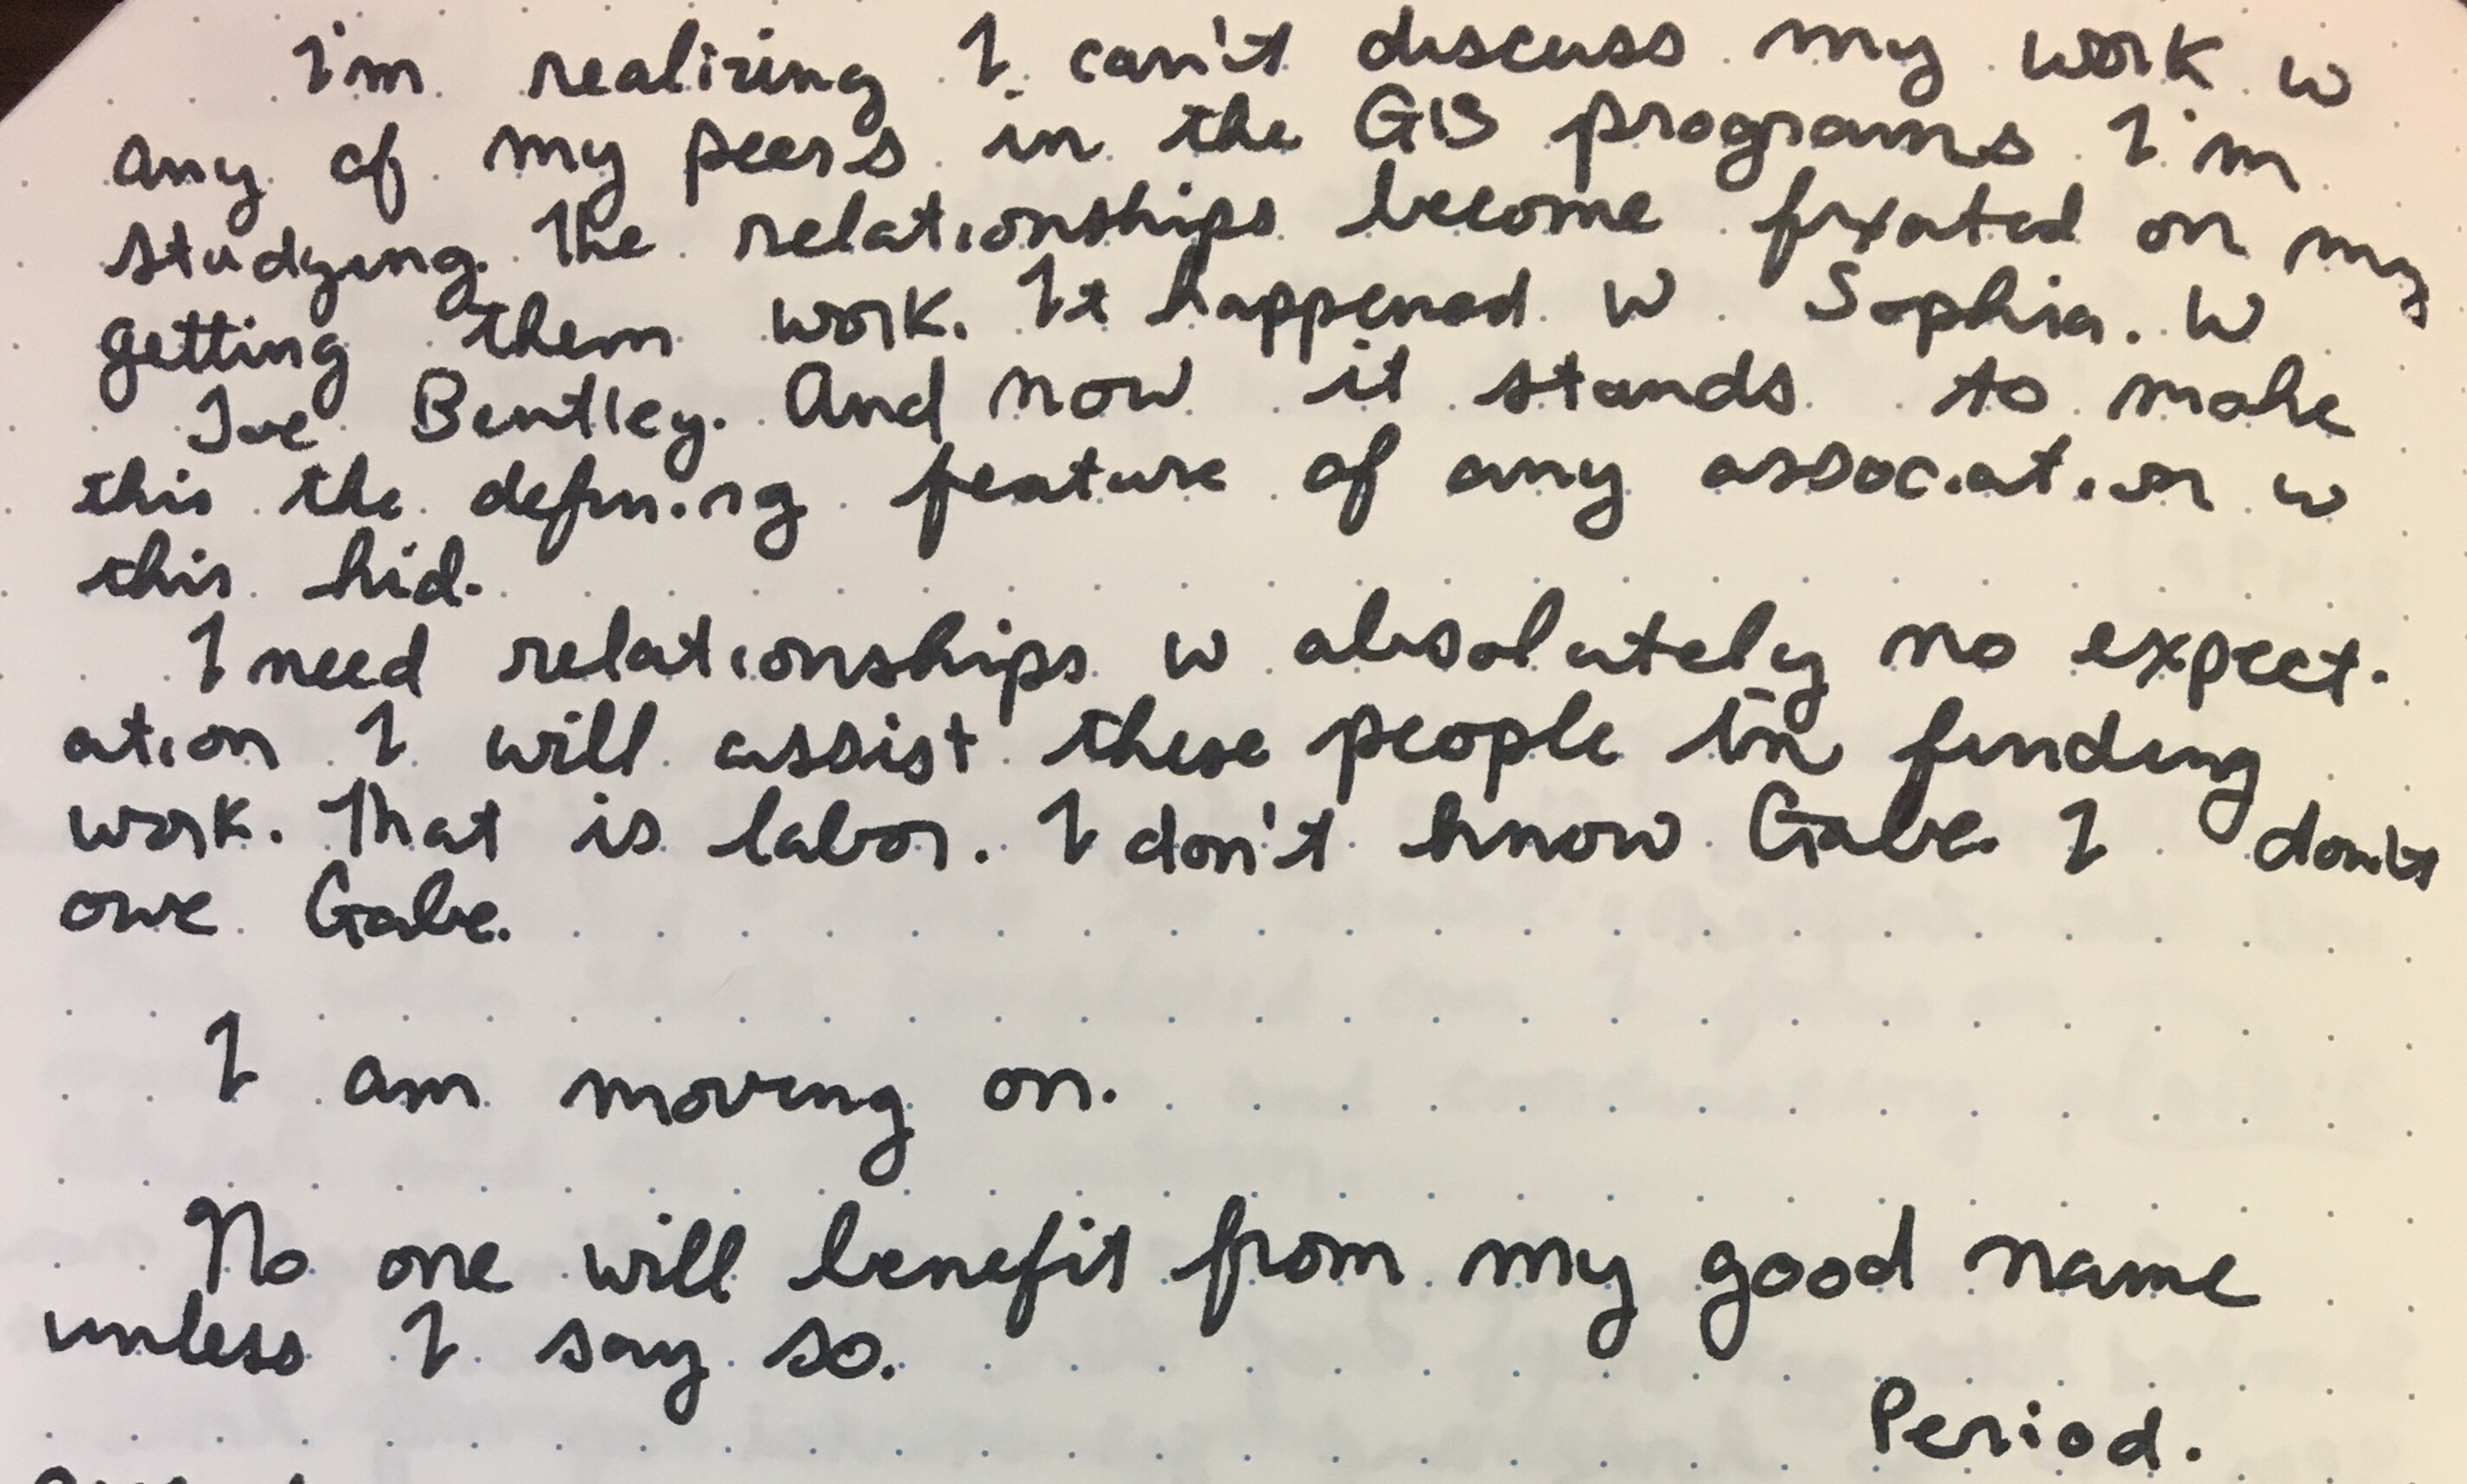 I'm realizing I can't discuss my work w
any of my peers in the GIS programs I'm
studying. The relationships become fixated on my
getting them work. It happened w Sophia. W
Joe Bentley. And now it stands to make
this the defining feature of any association w
this kid.
I need relationships w absolutely no expect-
ation I will assist these people in finding
work. That is labor. I don't know Gabe. I don't
owe Gabe.
I am moving on.
No one will benefit from my good name
unless I say so.
Period.